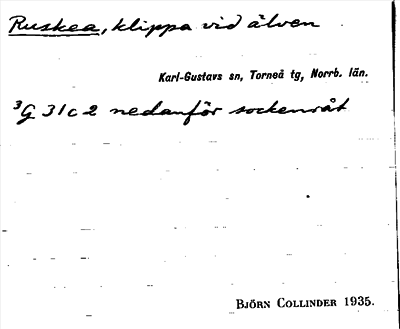 Ruskea, klippa vid älven
Karl-Gustavs sn, Torneå tg, Norrb. län.
³G 31c2 nedanför sockenråt
BJÖRN COLLINDER 1935.